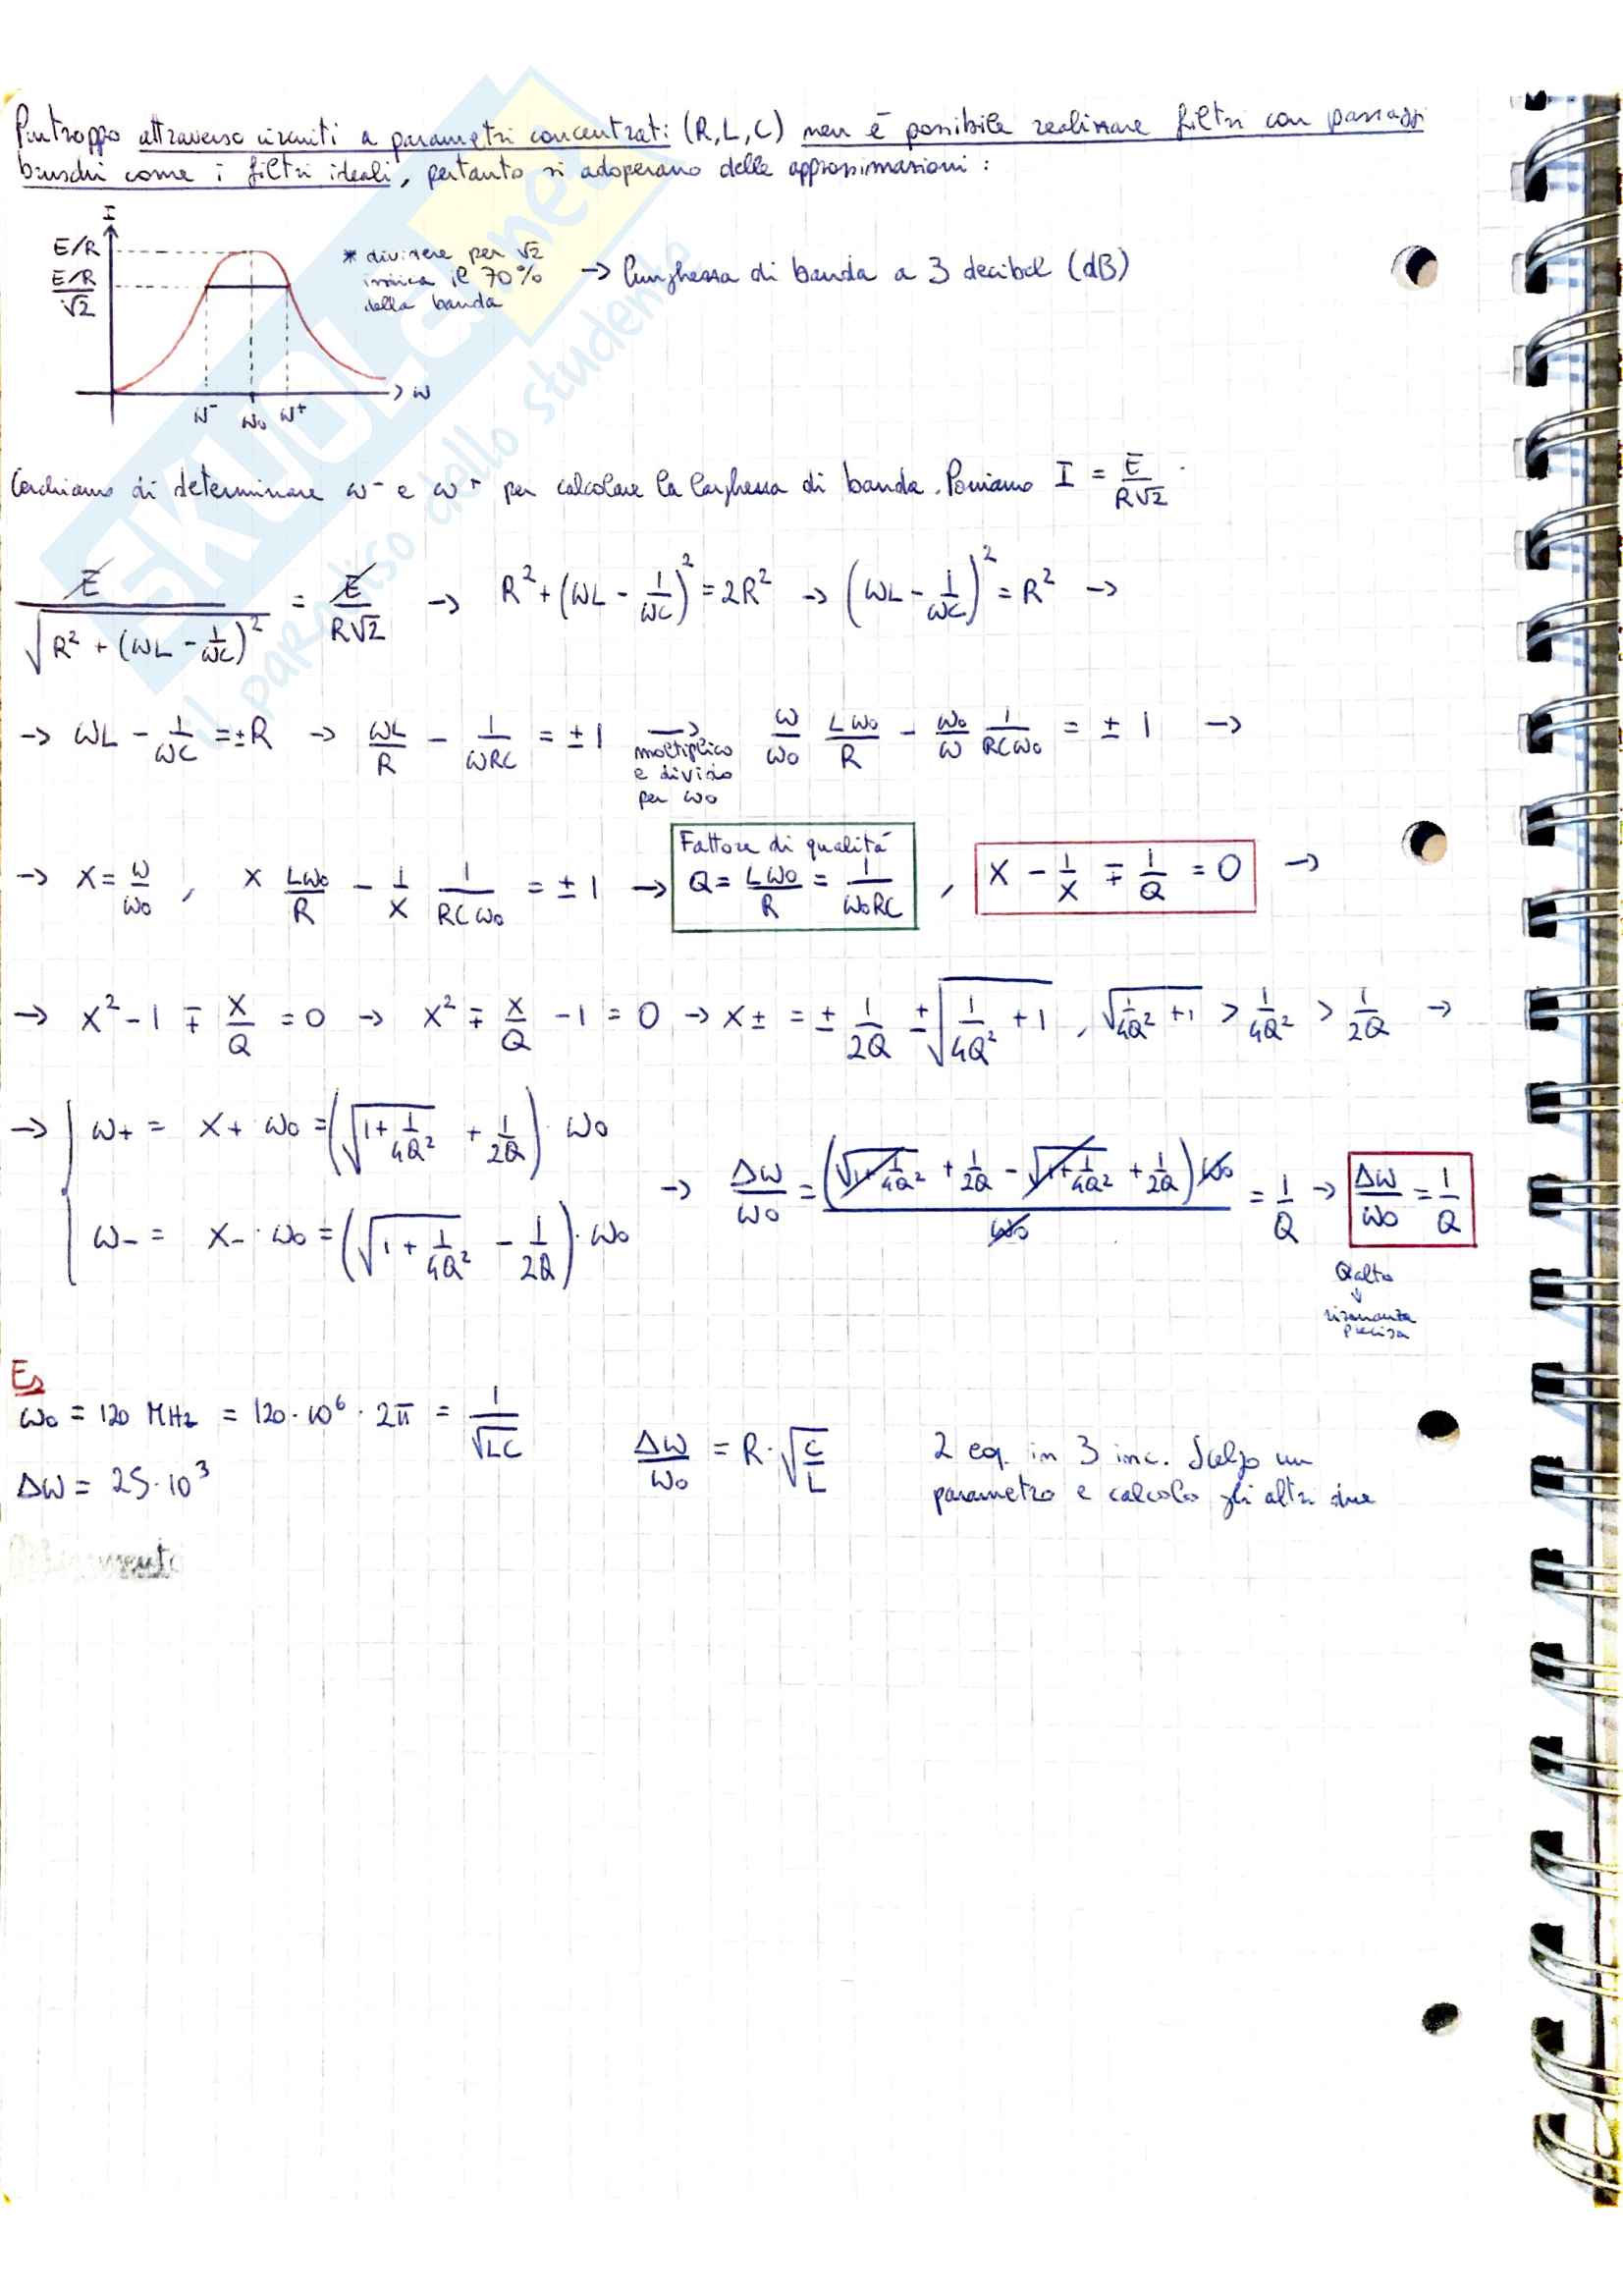 Purtroppo attraverso circuiti a parametri concentrati (R,L,C) non è possibile realizzare filtri con passaggi
bruschi come i filtri ideali, pertanto si adoperano delle approssimazioni:
I
E/R
E/R
√2
ω
ω- ω0 ω+
* dividere per √2
indica il 70%
della banda
-> lunghezza di banda a 3 decibel (dB)
Cerchiamo di determinare ω- e ω+ per calcolare la larghezza di banda. Poniamo I = E/(R√2)
E/√(R² + (ωL - 1/(ωC))²) = E/(R√2) -> R² + (ωL - 1/(ωC))² = 2R² -> (ωL - 1/(ωC))² = R² ->
-> ωL - 1/(ωC) = ±R -> ωL/R - 1/(ωRC) = ±1 -> ω/ω0 Lω0/R - ω0/ω 1/(RCω0) = ±1 ->
moltiplico
e divido
per ω0
-> X = ω/ω0 , X Lω0/R - 1/X 1/(RCω0) = ±1 ->
Fattore di qualità
Q = Lω0/R = 1/(ω0RC)
, X - 1/X ∓ 1/Q = 0 ->
-> X² - 1 ∓ X/Q = 0 -> X² ∓ X/Q - 1 = 0 -> X± = ± 1/(2Q) ± √(1/(4Q²) + 1) , √(1/(4Q²) + 1) > 1/(4Q²) > 1/(2Q) ->
-> ω+ = X+ · ω0 = (√(1 + 1/(4Q²)) + 1/(2Q)) · ω0
ω- = X- · ω0 = (√(1 + 1/(4Q²)) - 1/(2Q)) · ω0
-> Δω/ω0 = (√(1 + 1/(4Q²)) + 1/(2Q) - √(1 + 1/(4Q²)) + 1/(2Q)) ω0 / ω0 = 1/Q -> Δω/ω0 = 1/Q
Q alto
↓
risonanza
precisa
Es
ω0 = 120 MHz = 120·10⁶ · 2π = 1/√(LC)
Δω = 25·10³
Δω/ω0 = R·√(C/L)
2 eq. in 3 inc. Scelgo un
parametro e calcolo gli altri due
SKUOLA.net
il paradiso dello studente